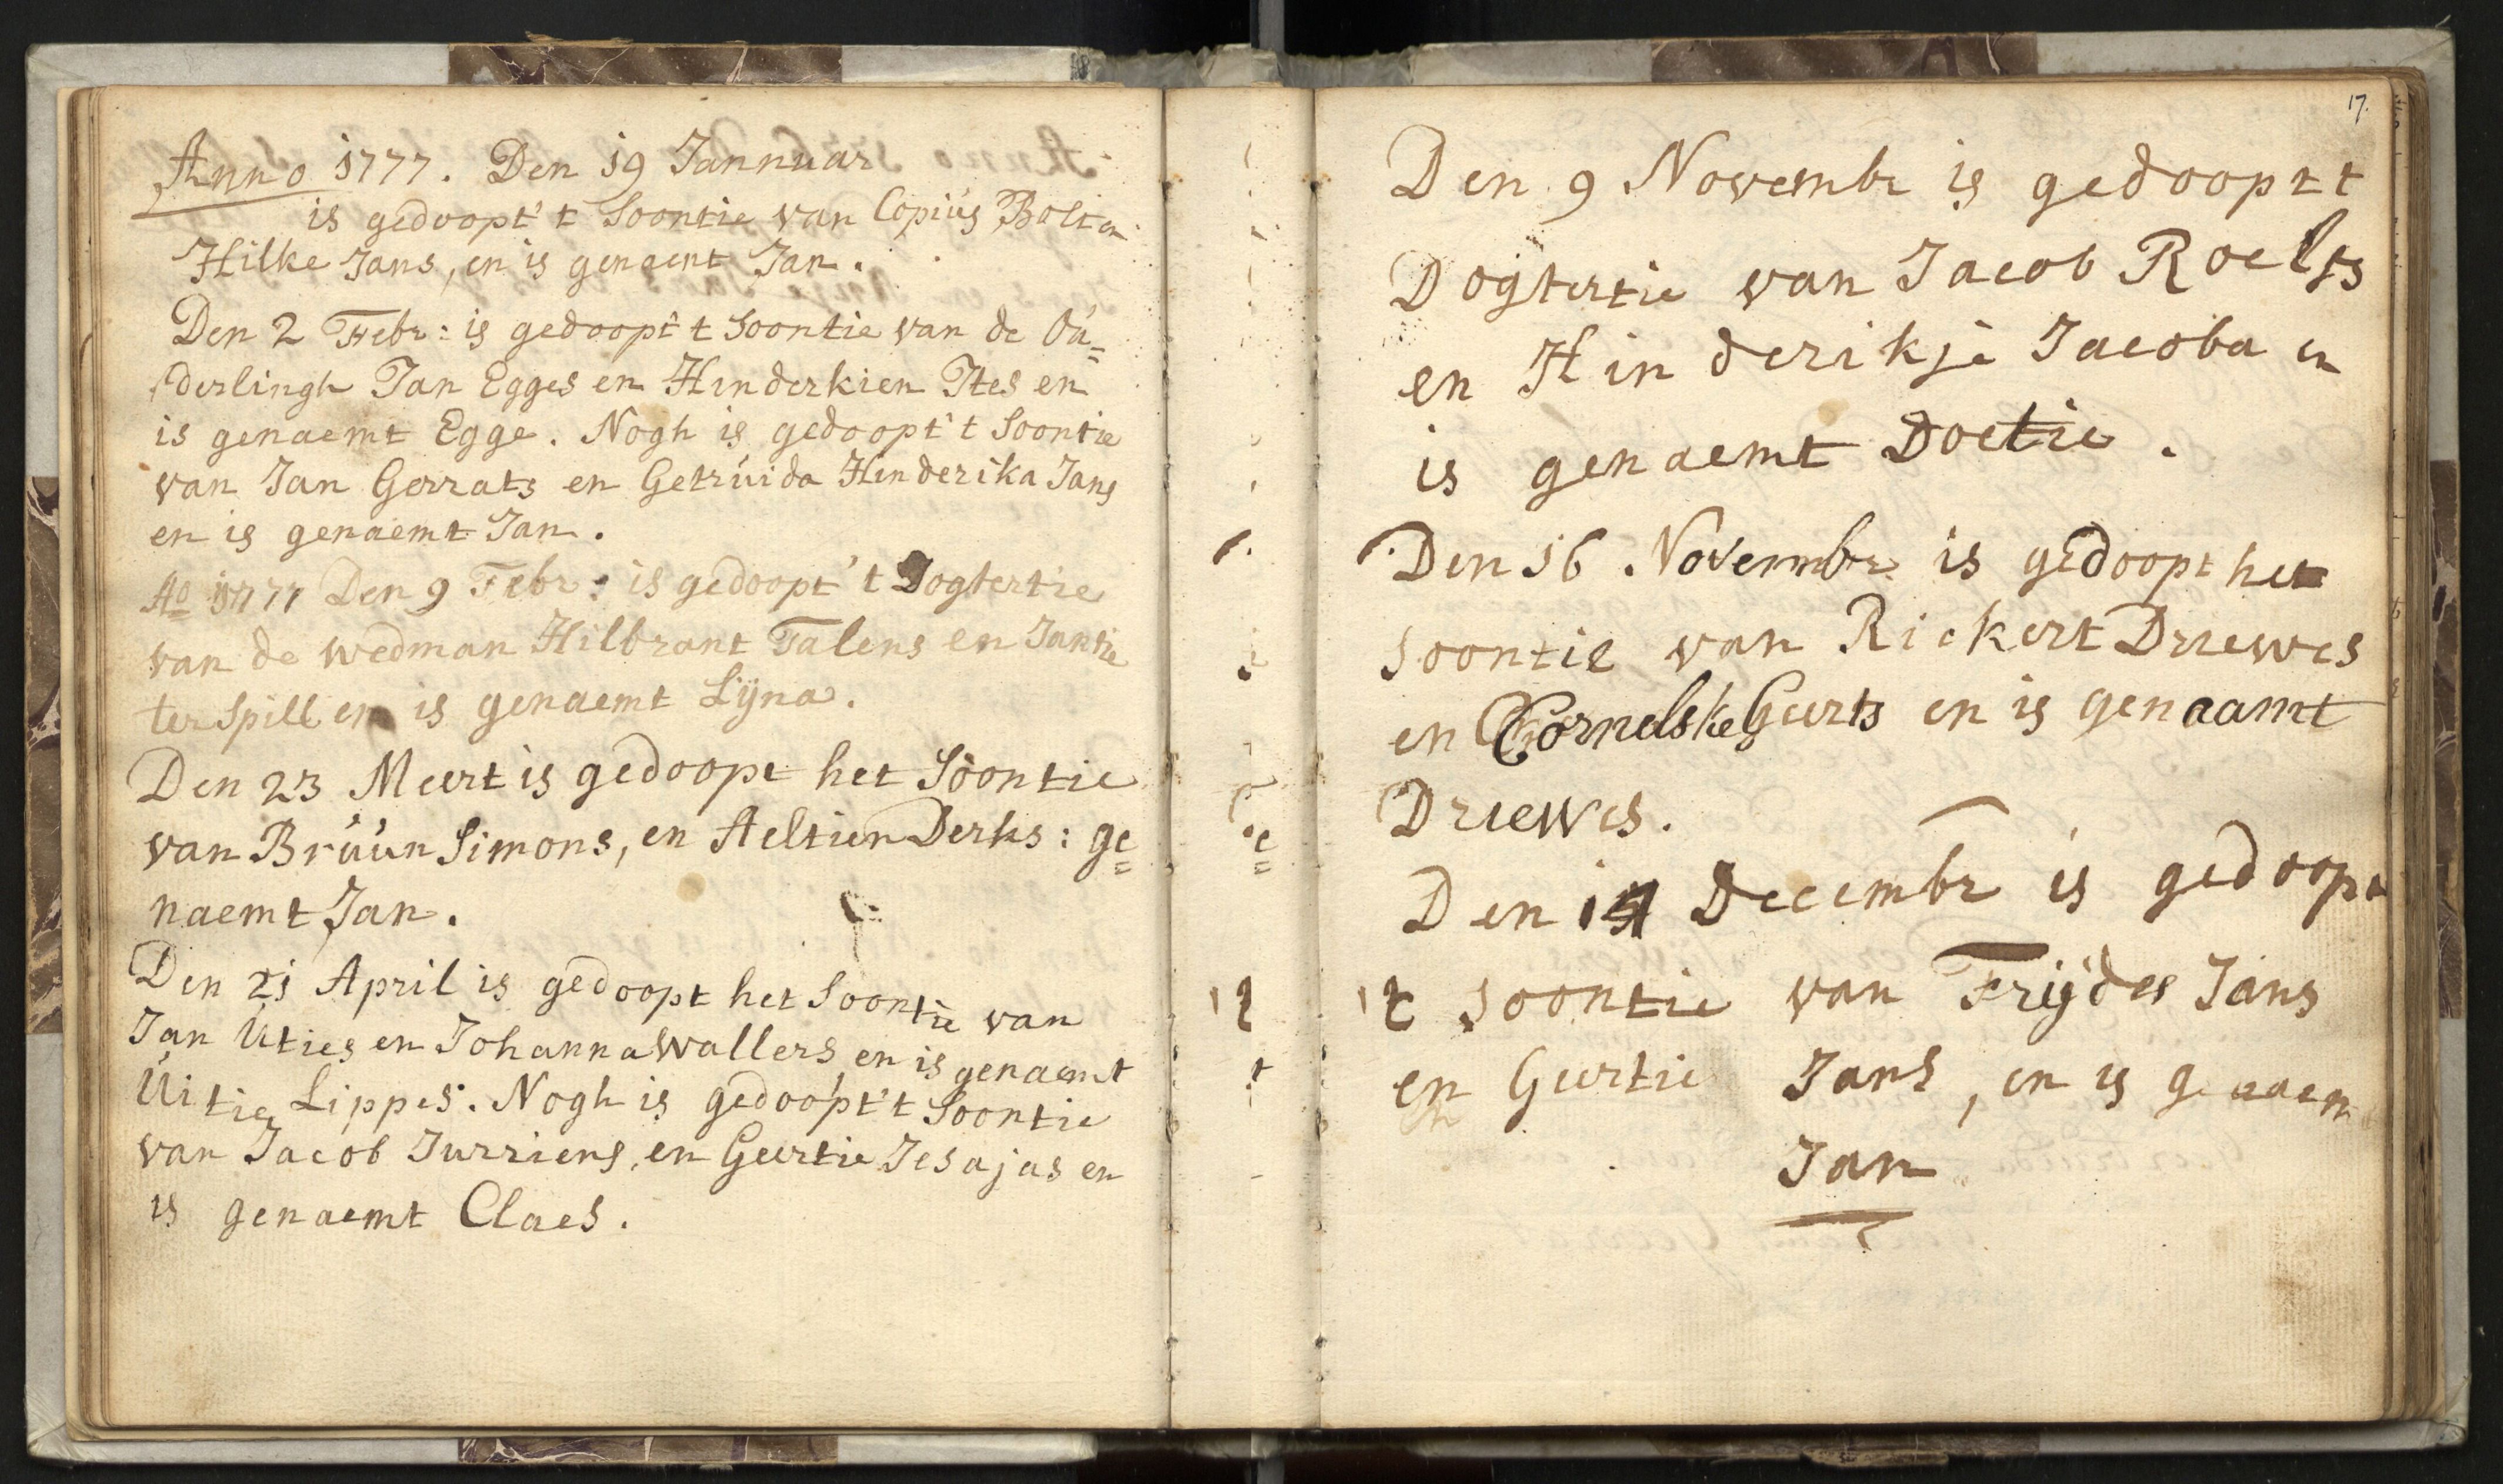 Anno 1777. Den 19 Jannuar
is gedoopt 't Soontie van Copius Bolt en
Hilke Jans, en is genaemt Jan.
Den 2 Febr: is gedoopt 't Soontie van de Ou=
derlingh Jan Egges en Hinderkien Ites en
is genaemt Egge. Nogh is gedoopt 't Soontie
van Jan Gerrats en Getruida Hinderika Jans
en is genaemt Jan.
Ao 1777 Den 9 Febr: is gedoopt 't Dogtertie
van de wedman Hilbrant Talens en Jantie
ter Spill en is genaemt Lijna.
Den 23 Meert is gedoopt het Soontie
van Bruun Simons, en Aeltien Derks: ge=
naemt Jan.
Den 21 April is gedoopt het Soontie van
Jan Uties en Johanna Wallers en is genaemt
Uitie Lippes. Nogh is gedoopt 't Soontie
van Jacob Jurriens, en Geertie Jesajas en
is genaemt Claes.
17.
Den 9 Novembr is gedoopt t
Dogtertie van Jacob Roelfs
en Hinderikje Jacoba en
is genaemt Doetie.
Den 16 Novembr is gedoopt het
Soontie van Rickert Driewes
en Cornelske Geerts en is genaamt
Driewes.
Den 14 Decembr is gedoopt
't Soontie van Frijdes Jans
en Geertie Jans, en is genaem
Jan